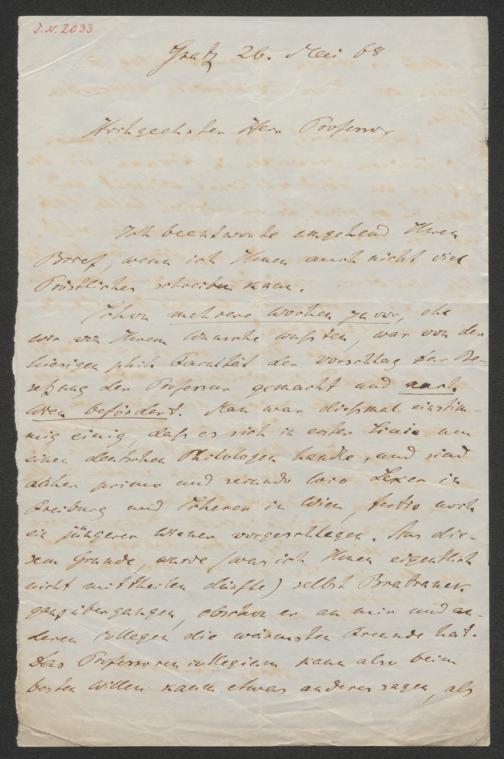 J.N. 2033
Gratz 26. Mai 68
Hochgeehrter Herr Professor
Ich beantworte umgehend Ihren
Brief, wenn ich Ihnen auch nicht viel
Tröstliches schreiben kann.
Schon mehrere Wochen zuvor, ehe
wir von Ihrem Wunsche wußten, war von der
hiesigen phil. Facultät der Vorschlag zur Be-
setzung der Professur gemacht und auch
befördert. Man war dießmal einstim-
mig einig, daß es sich in erster Linie um
einen deutschen Philologen handle, und sind
daher primo und secundo loco Lexer in
Freiburg und Scherer in Wien, tertio noch
ein jüngerer Wiener vorgeschlagen. Aus die-
sem Grunde, wurde (was ich Ihnen eigentlich
nicht mittheilen dürfte) selbst Bratranek
ganz übergangen, obschon er an mir und an-
deren Collegen die wärmsten Freunde hat.
Das Professorencollegium kann also beim
besten Willen kaum etwas anderes sagen, als